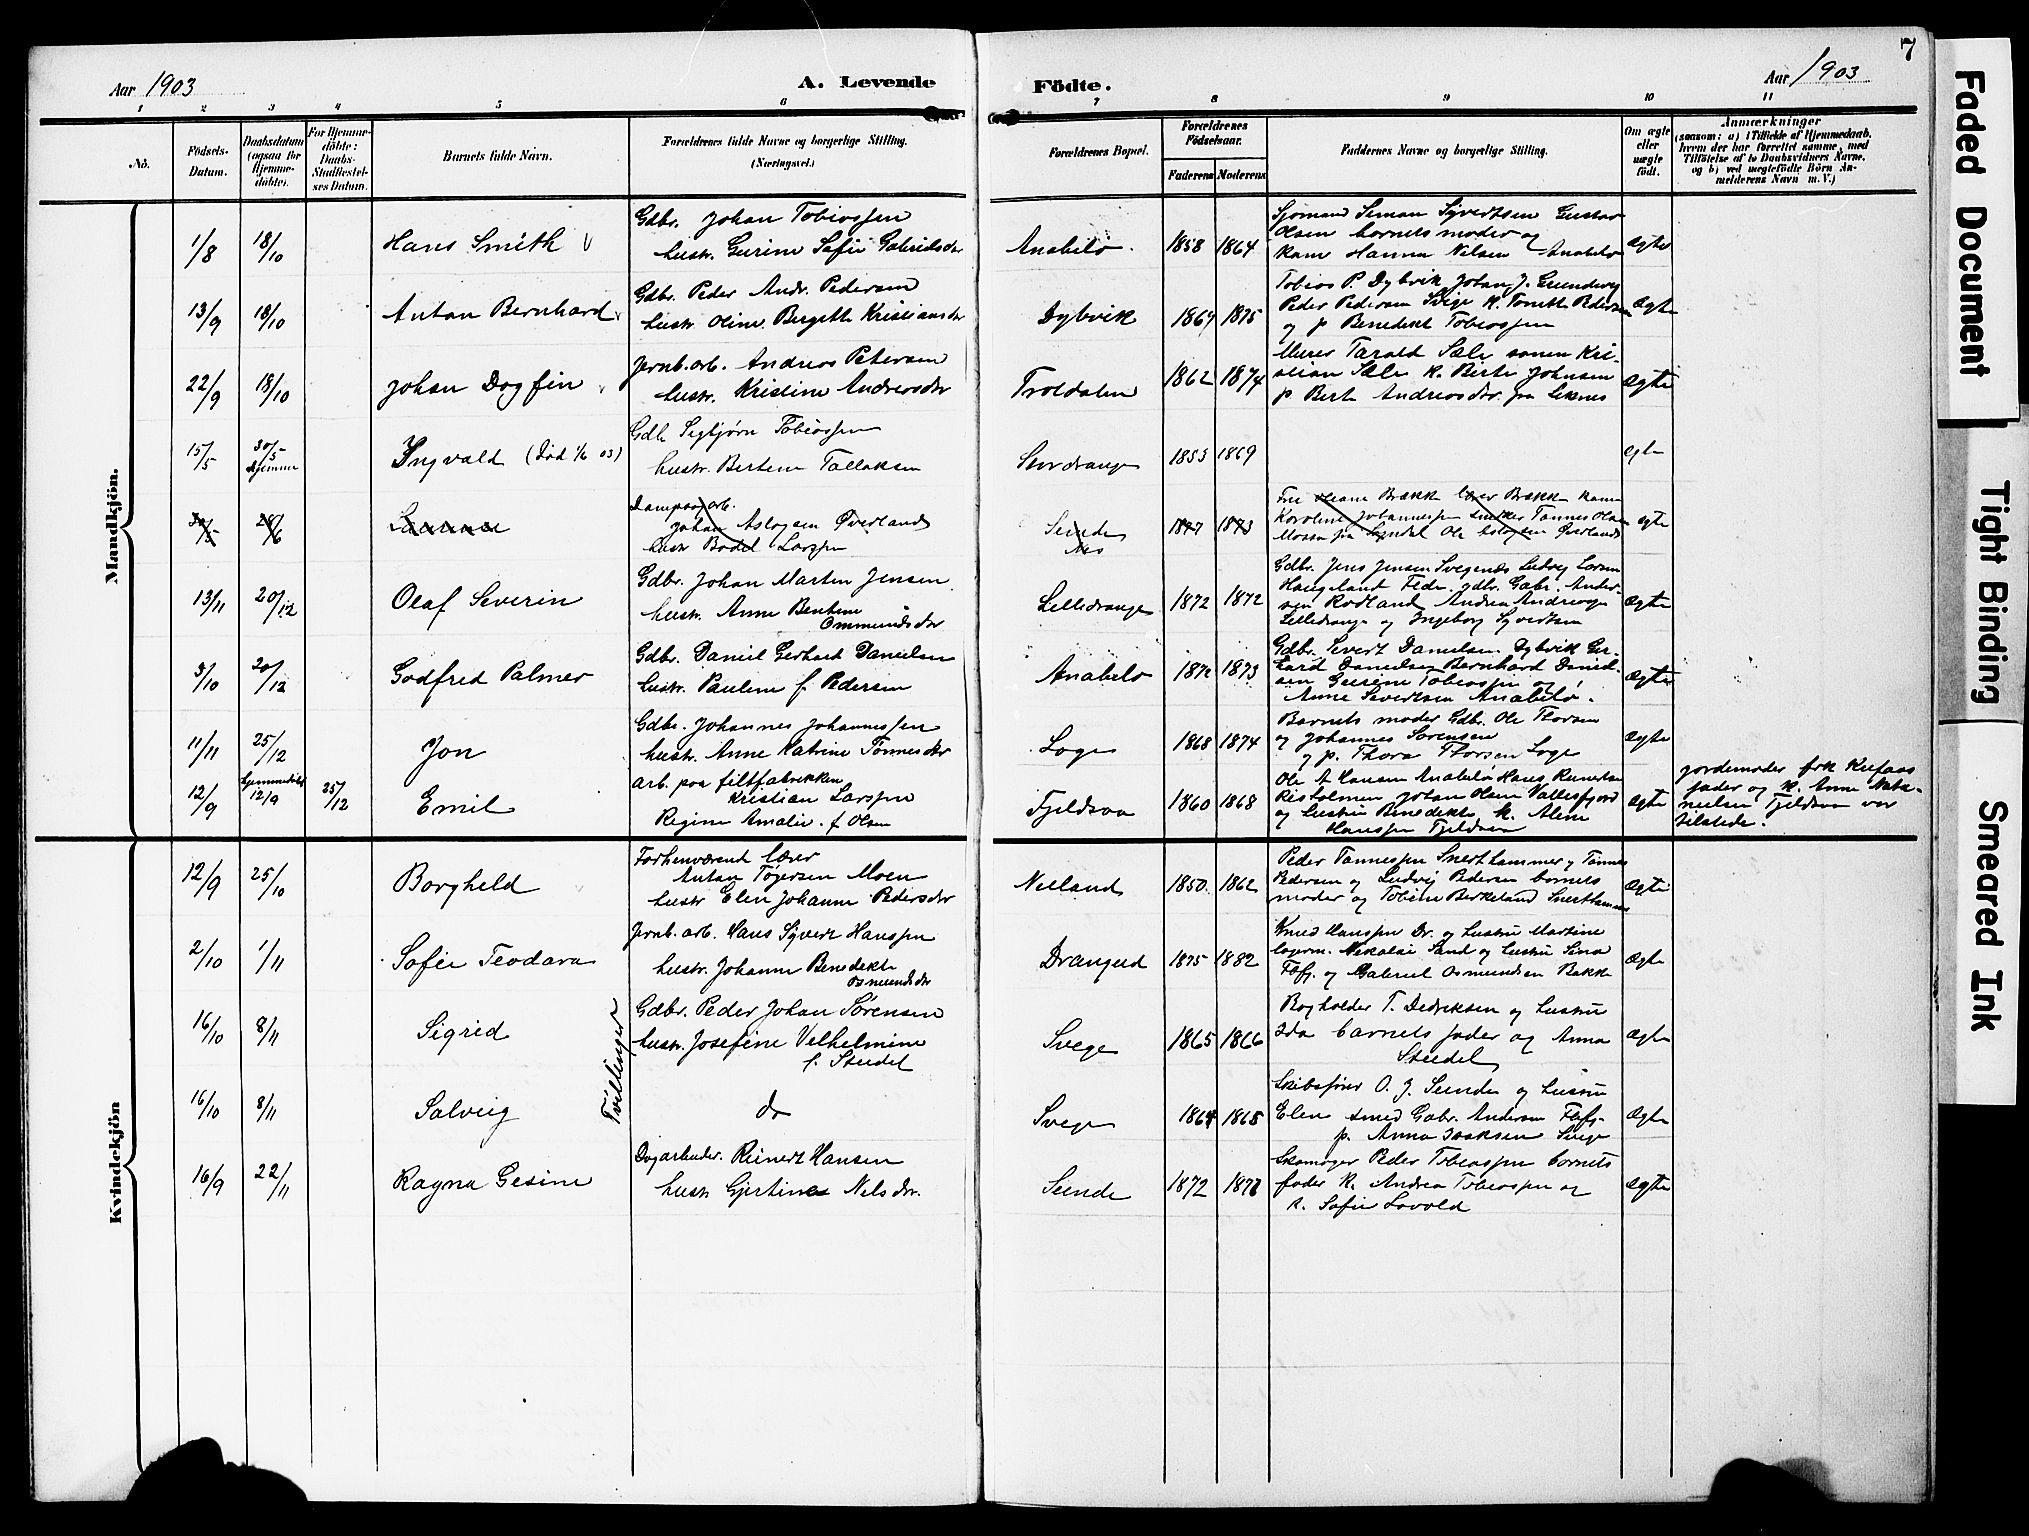 Aar 1903
A. Levende
Födte.
Aar 1903
7
1 2 3 4 5 6 7 8 9 10 11
No.
Födsels-
Datum.
Daabsdatum
(ogsaa for
Hjemme-
döbte).
For Hjemme-
döbte:
Daabs-
Stadfæstel-
ses Datum.
Barnets fulde Navn.
Forældrenes fulde Navne og borgerlige Stilling.
(Næringsvei.)
Forældrenes Bopæl.
Forældrenes
Födselsaar.
Faderens
Moderens
Faddernes Navne og borgerlige Stilling.
Om ægte
eller
uægte
født.
Anmærkninger
(saasom: a) i Tilfælde af Hjemmedaab,
hvem der har forrettet samme, med
Tilföielse af to Daabsvidners Navne,
og b) ved uægtefödte Börn An-
melderens Navn m. V.)
Mandkjön.
1/8 18/10 Hans Smith
Gdbr. Johan Tobiassen
hustr. Gurine Sofie Gabrielsdtr
Anabelø 1858 1864
Sjømand Seman Syvertsen Gustav
Olsen barnets moder og
kone Hanna Nilsen Anabelø
Ægte
13/9 18/10 Anton Bernhard
Gdbr. Peder Andr. Pedersen
hustr. Oline Bergitte Kristiansdtr
Dybvik 1864 1875
Tobias P. Dybvik Johan J.
Peder Pedersen Svege k. Pedersen
og p Benedikt Tobiassen
Ægte
22/9 18/10 Johan Dagfin
Jernb. arb. Andreas Petersen
hustr. Kristine Andreasdtr
Troldalen 1862 1874
Murer Tarald Sæle sonen Kri-
stian Sæle k. Berte Johnsen
p Berte Andreasdtr. fra Leknes
Ægte
15/5 30/5 hjemme Ingvald (Død 1/6 03)
Gdb Sigbjørn Tobiassen
hustr. Bertine Tallaksen
Stordrange 1853 1869
egte
30/5 28/6
Dampsagarb.
Johan Aslagsen Øverland
hustr Bodel Larsen
Sende
1877 1873
Fru Oleane Brækk lærer Brækk kone
Karoline Johannessen snekker Tønnes Olsen
Mossa fra Lyndal Ole Aslagsen Øverland
egte
13/11 20/12 Olaf Severin
Gdbr. Johan Martin Jensen
hustr. Anne Bentine
Ommundsdtr
Lilledrange 1872 1872
Gdbr. Jens Jensen Svegenes Ludvig Larsen
Haugeland Feda gdbr. Gabr. Ander-
sen Rødland Andrea Andreasen
Lilledrange og Ingeborg Syvertsen
Ægte
3/10 20/12 Godfred Palmer
Gdbr. Daniel Gerhart Danielsen
hustr. Pauline f. Pedersen
Anabelø 1872 1873
Gdbr. Severt Danielsen Dybvik Ger-
hard Danielsen Bernhard Daniel-
sen Gurine Tobiassen og
Anne Severtsen Anabelø.
Ægte
11/11 25/12 Jon
Gdbr. Johannes Johannessen
hustr. Anne Katrine Tønnesdtr
Loge 1868 1874
Barnets moder Gdbr. Ole Thorsen
og Johannes Sørensen
og p. Thora Thorsen Loge
Ægte
12/9 hjemmedøbt 12/9 25/12 Emil
arb. paa filtfabrikken
Kristian Larsen
Regine Amalie f. Olsen
Fjeldsaa 1860 1868
Ole A Hansen Anabelø Hans Reinertsen
Risholmen Johan Olsen Vallesfjord
og hustru Benedikte k. Aline
Hanssen Fjeldsaa
Ægte
jordemoder frk
fader og k. Anne Nata-
nielsen Fjeldsaa var
tilstede.
Kvindekjön
12/9 25/10 Borghild
Forhenværend lærer
Anton Tøgersen Moen
hustr Elen Johanne Pedersdtr
Neiland 1850. 1862
Peder Tønnessen Snerthammer og Tønnes
Pedersen og Ludvig Pedersen barnets
moder og Tobine Birkeland Snerthammer
Ægte
2/10 1/11 Sofie Teodora
Jernb. arb. Hans Syvert Hanssen
hustr. Johanne Benedikte
Osmundsdtr
Drangeid 1875 1882
Knud Hanssen Dr. og hustru Martine
Nikolai Sand og hustru Sina
Flkfj. og Gabriel Osmundsen Bakke
Ægte
16/10 8/11 Sigrid
Tvillinger
Gdbr. Peder Johan Sørensen
hustr. Josefine Vilhelmine
f. Stridel
Svege 1865 1866
Bogholder T. Dedriksen og hustru
Ida barnets fader og Anna
Stridel
Ægte
16/10 8/11 Salveig
do
Svege 1864 1865
Skibsfører O. J. Sende og hustru
Elen smed Gabr. Andersen Flkfj.
p. Anna Isaksen Svege
Ægte
16/9 22/11 Ragna Gesine
Dagarbeider. Reinert Hansen
hustr Gjertine Nelsdtr.
Sende 1872 1878
Skomager Peder Tobiassen barnets
fader k. Andrea Tobiassen og
k. Sofie Lovold
Ægte
Faded Document
Tight Binding
Smeared Ink